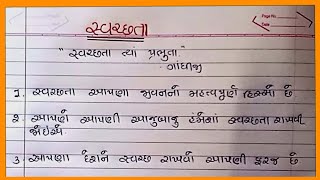 સ્વચ્છતા
"સ્વચ્છતા ત્યાં પ્રભુતા"
- ગાંધીજી
1. સ્વચ્છતા આપણા જીવનનો મહત્વપૂર્ણ હિસ્સો છે
2 આપણે આપણી આજુબાજુ હંમેશાં સ્વચ્છતા રાખવી
જોઈએ
3. આપણા દેશને સ્વચ્છ રાખવો આપણી ફરજ છે